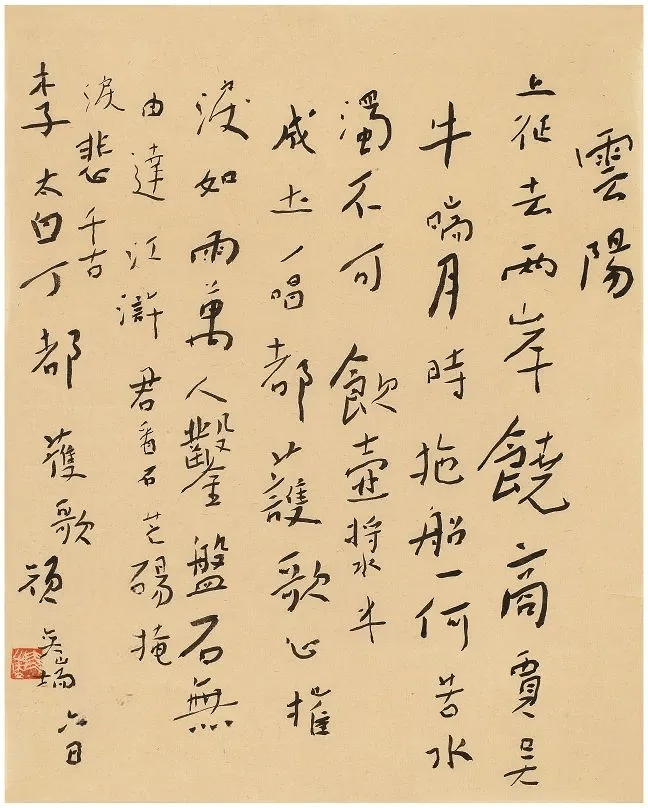 雲陽
上征去兩岸饒商賈吳
牛喘月時拖船一何苦水
濁不可飲壺漿半
成土一唱都護歌心摧
淚如雨萬人鑿盤石無
由達江滸君看石芒碭掩
淚悲千古
李太白丁都護歌
六日